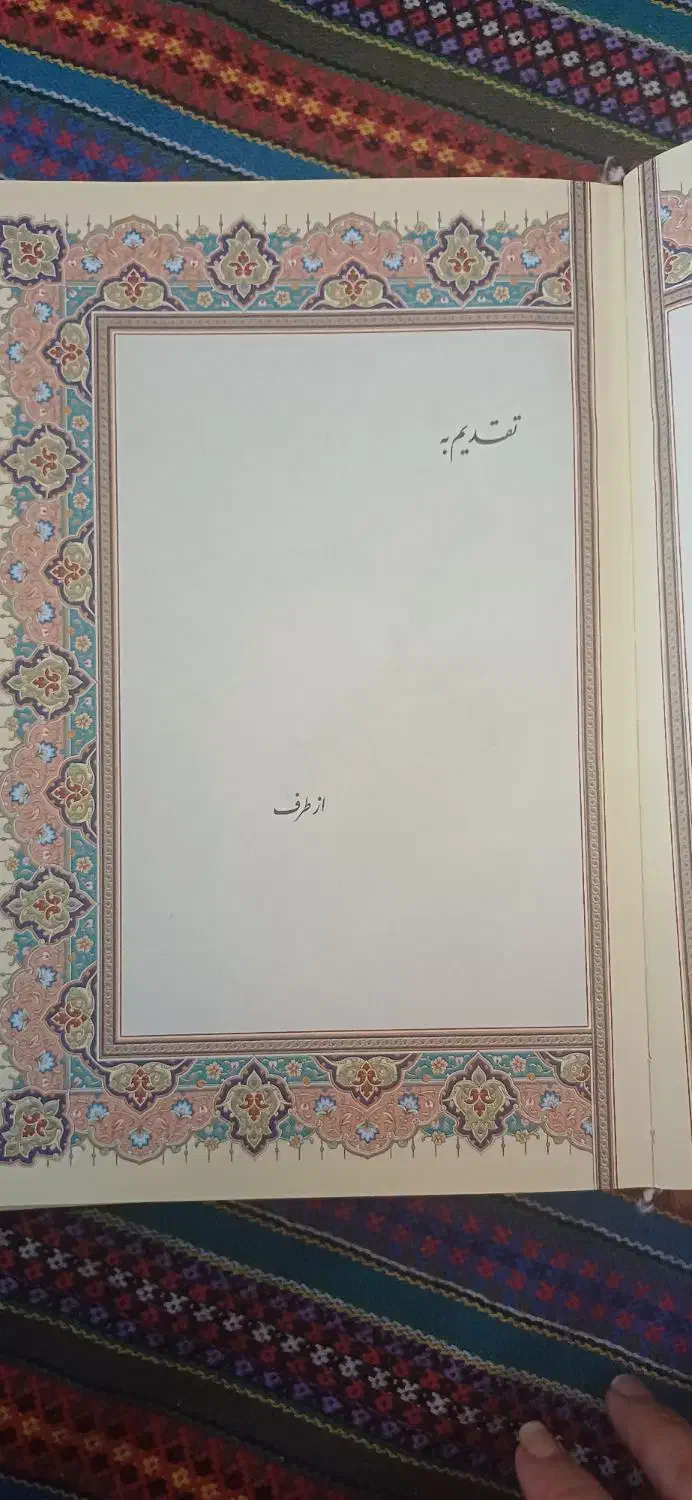 تقدیم به
از طرف